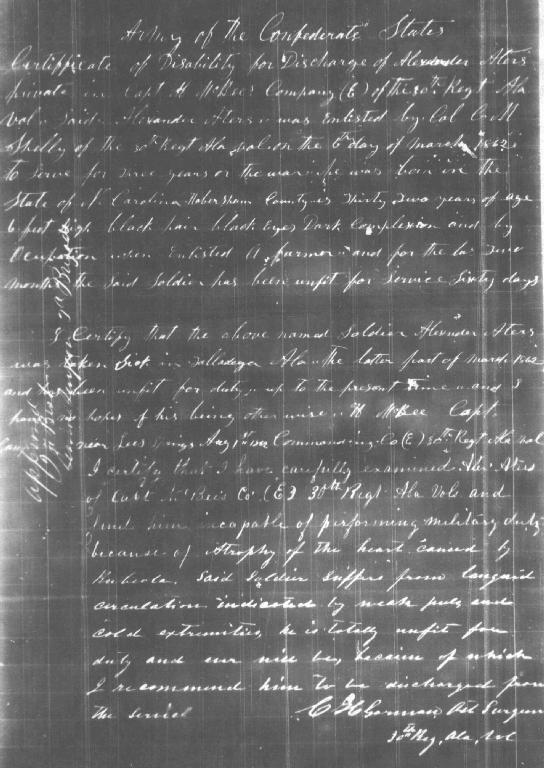 Army of the Confederate States
Certifficate of Disability for Discharge of Alexander Aters
private in Capt H McBees Company (E) of the 30th Regt Ala
vol. Said Alexander Aters was enlisted by Col C M
Shelly of the 30th Regt Ala vol on the 6th day of March 1862
to serve for three years or the war he was born in the
State of N Carolina Habersham County is thirty two years of age
6 feet high black hair black eyes Dark Complexion and by
Occupation when Enlisted A farmer and for the last two
months the said Soldier has been unfit for service Sixty days
I Certify that the above named Soldier Alexander Aters
was taken Sick in Talladega Ala the latter part of March 1862
and been unfit for duty up to the present time and I
have no hopes of his being otherwise H McBee Capt.
near Lees Springs Aug 1st 1862 Commanding Co (E) 30th Regt Ala vol
I certify that I have carefully examined Aters
of Capt McBees Co (E) 30th Regt Ala Vols and
find him incapable of performing military duty
because of Atrophy of the heart caused by
Rubeola. Said Soldier suffers from languid
circulation indicated by weak pulse and
cold extremities he is totally unfit for
duty and ever will be, because of which
I recommend him to be discharged from
the service
Gorman, Ast Surgeon
30th Reg, Ala, Vol
approved